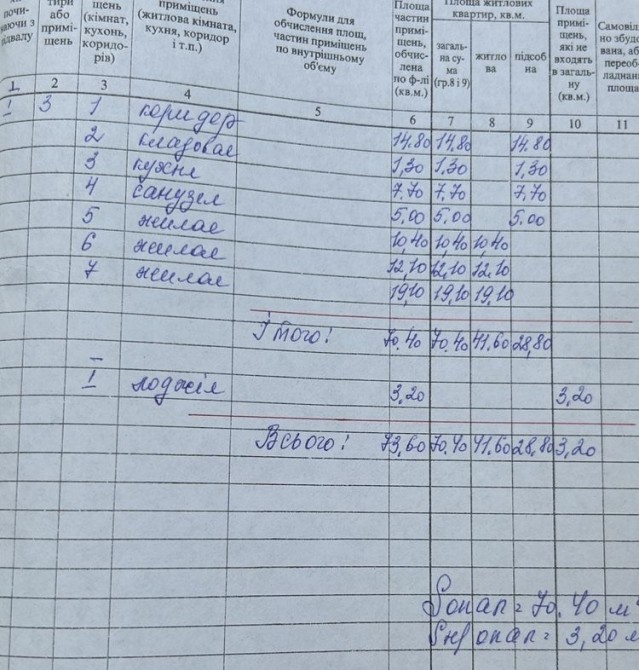 почи-
наючи з
підвалу
тири
або
примі-
щень
щень
(кімнат,
кухонь,
коридо-
рів)
приміщень
(житлова кімната,
кухня, коридор
і т.п.)
Формули для
обчислення площ,
частин приміщень
по внутрішньому
об'єму
Площа
частин
примі-
щень,
обчис-
лена
по ф-лі
(кв.м.)
Площа житлових
квартир, кв.м.
загаль-
на су-
ма
(гр.8 і 9)
житло
ва
підсоб
на
Площа
примі-
щень,
які не
входять
в загаль-
ну
(кв.м.)
Самовіл
но збудо
вана, або
переоб-
ладнана
площа
1 2 3 4 5 6 7 8 9 10 11
I 3 1 коридор 14.80 14.80 14.80
2 кладовая 1,30 1.30 1,30
3 кухня 7.70 7,70 7,70
4 санузел 5.00 5.00 5.00
5 жилая 10,40 10,40 10,40
6 жилая 12,10 12,10 12,10
7 жилая 19,10 19,10 19,10
Ітого: 70.40 70.40 41.60 28,80
I лоджія 3,20 3,20
Всього: 73,60 70.40 41.60 28,80 3,20
Sопал = 70.40 м²
Sнеопал = 3,20 м